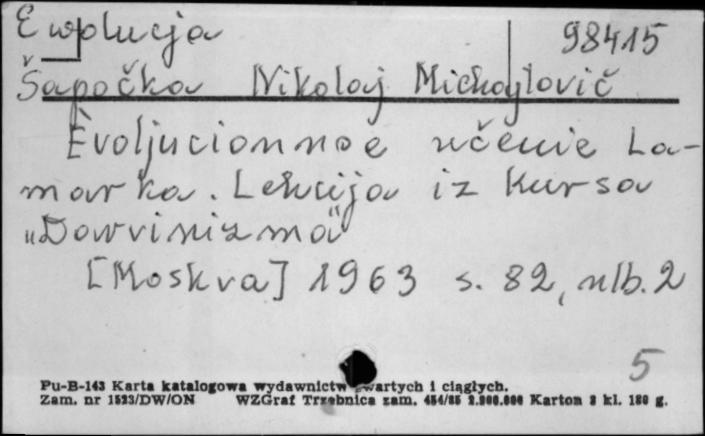 Ewolucja 98415
Šapočka Nikolaj Michajlovič
Èvoljucionnoe učenie La-
marka. Lekcija iz kursa
„Darvinizma"
[Moskva] 1963 s. 82, nlb. 2
5
Pu-B-143 Karta katalogowa wydawnictw zwartych i ciągłych.
Zam. nr 1523/DW/ON WZGraf Trzebnica zam. 454/85 2.200.000 Karton 8 kl. 180 g.